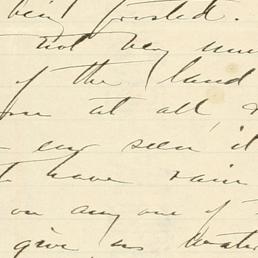 being frosted.
Not very mu
of the land
at all,
ever seen it
to have rain
on any one of
give us water